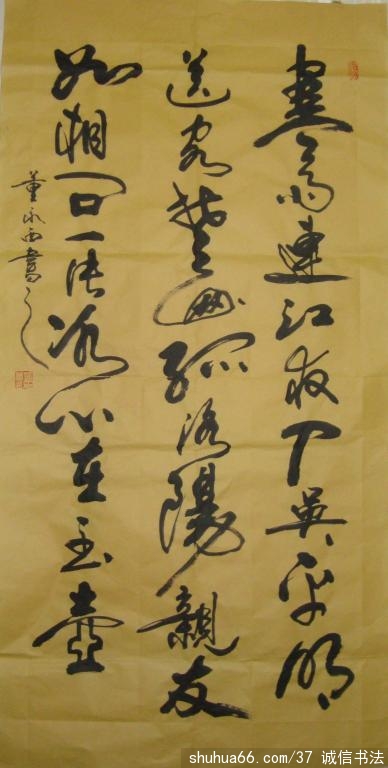 寒雨連江夜入吳平明
送客楚山孤洛陽親友
如相問一片冰心在玉壺
董永西書之
shuhua66.com/37 诚信书法